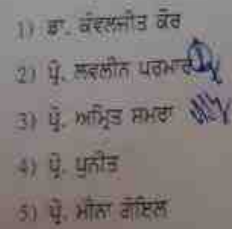 1) ਡਾ. ਕੰਵਲਜੀਤ ਕੌਰ
2) ਪ੍ਰੋ. ਲਵਲੀਨ ਪਰਮਾਰ
3) ਪ੍ਰੋ. ਅਮ੍ਰਿਤ ਸਮਰਾ
4) ਪ੍ਰੋ. ਪੁਨੀਤ
5) ਪ੍ਰੋ. ਮੀਨਾ ਗੋਇਲ